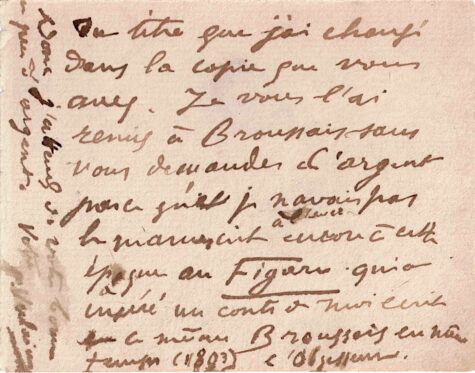 du titre que j'ai changé
dans la copie que vous
avez. Je vous l'ai
remis à Broussais sans
vous demander d'argent
parce qu'il je n'avais pas
le manuscrit encore à cette
époque au Figaro qui a
inséré un conte de moi écrit
à ce même Broussais en même
temps (1893)
Donc j'attends de votre bonne
peu d'argent. Votre